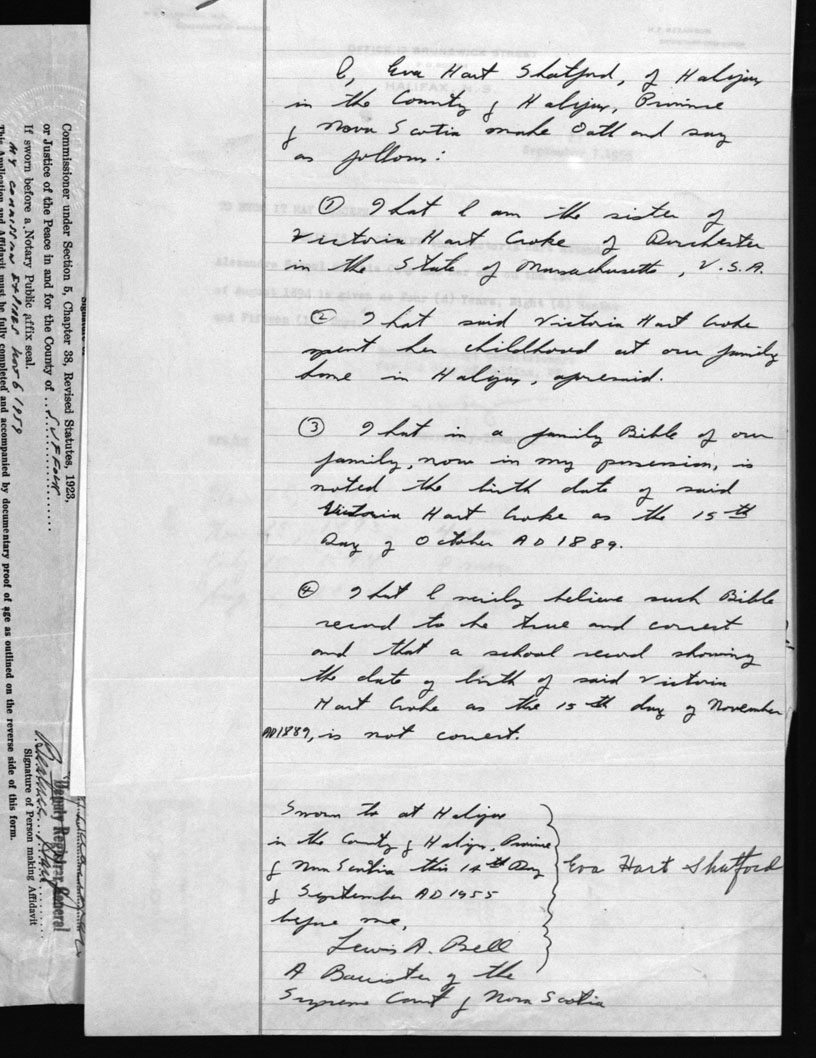 I, Eva Hart Shatford, of Halifax
in the County of Halifax, Province
of Nova Scotia make Oath and say
as follows:
① That I am the sister of
Victoria Hart Croke of Dorchester
in the State of Massachusetts, U.S.A.
② That said Victoria Hart Croke
spent her childhood at our family
home in Halifax, aforesaid.
③ That in a family Bible of our
family, now in my possession, is
noted the birth date of said
Victoria Hart Croke as the 15th
Day of October AD 1889.
④ That I verily believe such Bible
record to be true and correct
and that a school record showing
the date of birth of said Victoria
Hart Croke as the 15th day of November
AD 1889, is not correct.
Sworn to at Halifax
in the County of Halifax, Province
of Nova Scotia this 14th Day
of September AD 1955
before me,
Lewis A. Bell
A Barrister of the
Supreme Court of Nova Scotia
Eva Hart Shatford
Commissioner under Section 5, Chapter 38, Revised Statutes, 1923,
or Justice of the Peace in and for the County of SUFFOLK
If sworn before a Notary Public affix seal.
MY COMMISSION EXPIRES NOV 6 1959
This Application and Affidavit must be fully completed and accompanied by documentary proof of age as outlined on the reverse side of this form.
Deputy Registrar General
Signature of Person making Affidavit